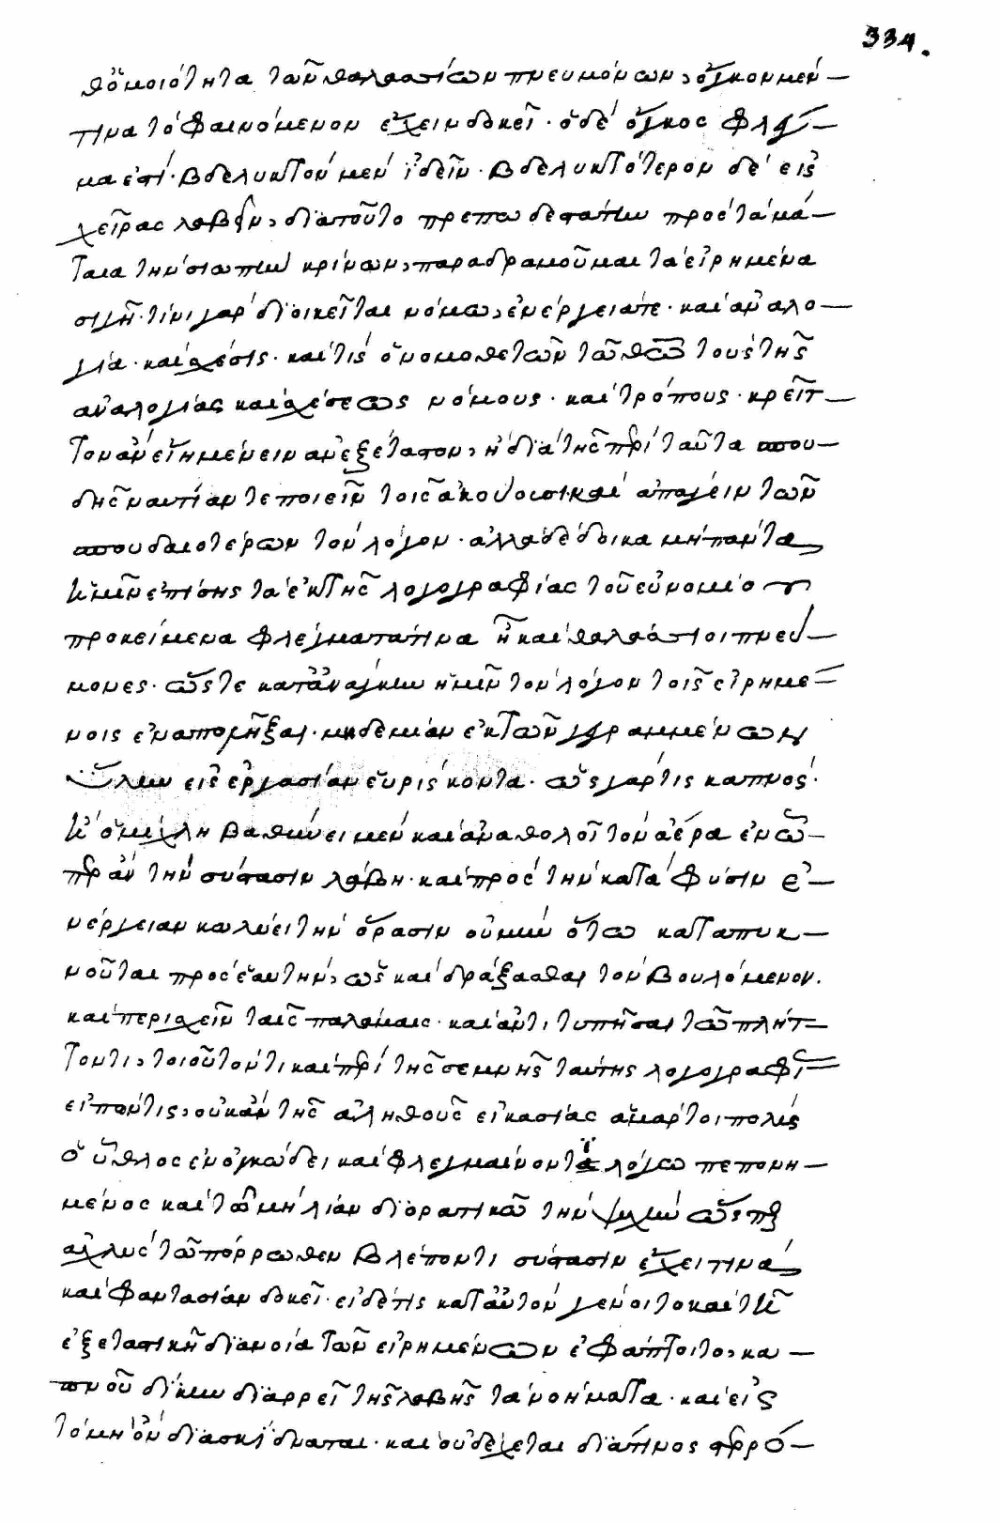 334.
θ ὁμοιότητα τῶν θαλασσίων πνευμόνων, ὄγκον μέν
τινα τὸ φαινόμενον ἔχειν δοκεῖ· ὁ δὲ ὄγκος φλέγ
μα ἐστί· βδελυκτὸν μὲν ἰδεῖν· βδελυκτότερον δὲ εἰς
χεῖρας λαβεῖν, διὰ τοῦτο πρέπωδεστάτην πρὸς τὰ μά
ταια τὴν σιωπὴν κρίνων, παραδραμοῦμαι τὰ εἰρημένα
σιγῆ· τίνι γὰρ διοικεῖται νόμω, ἐνέργειά τε· καὶ ἀναλο
γία· καὶ σχέσις· καὶ τίς ὁ νομοθετῶν τῶ θεῶ τοὺς τῆς
ἀναλογίας καὶ σχέσεως νόμους· καὶ τρόπους· κρεῖτ
τον ἂν εἴη μένειν ἀνεξέταστον, ἢ διὰ τῆς περὶ ταῦτα σπου
δῆς ναυτίαν τε ποιεῖν τοῖς ἀκούουσι· καὶ ἀπάγειν τῶν
σπουδαιοτέρων τὸν λόγον· ἀλλὰ δέδοικα μὴ πάντα
ἡμῖν ἐπίσης τὰ ἐκ τῆς λογογραφίας τοῦ εὐνομίου
προκείμενα φλέγματά τινα ἦ καὶ θαλάσσιοι πνεύ
μονες· ὥστε κατανάγκην ἡμῖν τὸν λόγον τοῖς εἰρημέ
νοις ἐναπομῆξαι· μηδεμίαν ἐκ τῶν γεγραμμένων
ὕλην εἰς ἐργασίαν εὑρίσκοντα· ὡς γάρ τις καπνὸς·
ἢ ὁμίχλη βαθύνει μὲν καὶ ἀναθολοῖ τὸν ἀέρα ἐν ὧ
περ ἂν τὴν σύστασιν λάβη· καὶ πρὸς τὴν κατὰ φύσιν ἐ
νέργειαν κωλύει τὴν ὅρασιν οὐ μὴν οὕτω καταπυκ
νοῦται πρὸς ἑαυτήν, ὡς καὶ δράξασθαι τὸν βουλόμενον.
καὶ περισχεῖν ταῖς παλάμαις· καὶ ἀντιτυπῆσαι τῶ πλήτ
τοντι, τοιοῦτόν τι καὶ περὶ τῆς σεμνῆς ταύτης λογογραφί
εἰπών τις, οὐκ ἂν τῆς ἀληθοῦς εἰκασίας ἁμάρτοι πολὺς
ὁ ὕθλος ἐν ὀγκώδει καὶ φλεγμαίνοντι λόγω πεπονη
μένος καὶ τῶ μὴ λίαν διορατικῶ τὴν ψυχὴν ὥσπερ
ἀχλὺς τῶ πόρρωθεν βλέποντι σύστασιν ἔχειν τινὰ
καὶ φαντασίαν δοκεῖ· εἰ δέ τις κατ' αὐτὸν γένοιτο καὶ τῆ
ἐξεταστικῆ διανοία τῶν εἰρημένων ἐφάπτοιτο, κα
πνοῦ δίκην διαρρεῖ τῆς λαβῆς τὰ νοήματα· καὶ εἰς
τὸ μὴ ὂν διασκίδναται· καὶ οὐδέχεται διά τινος στερρό